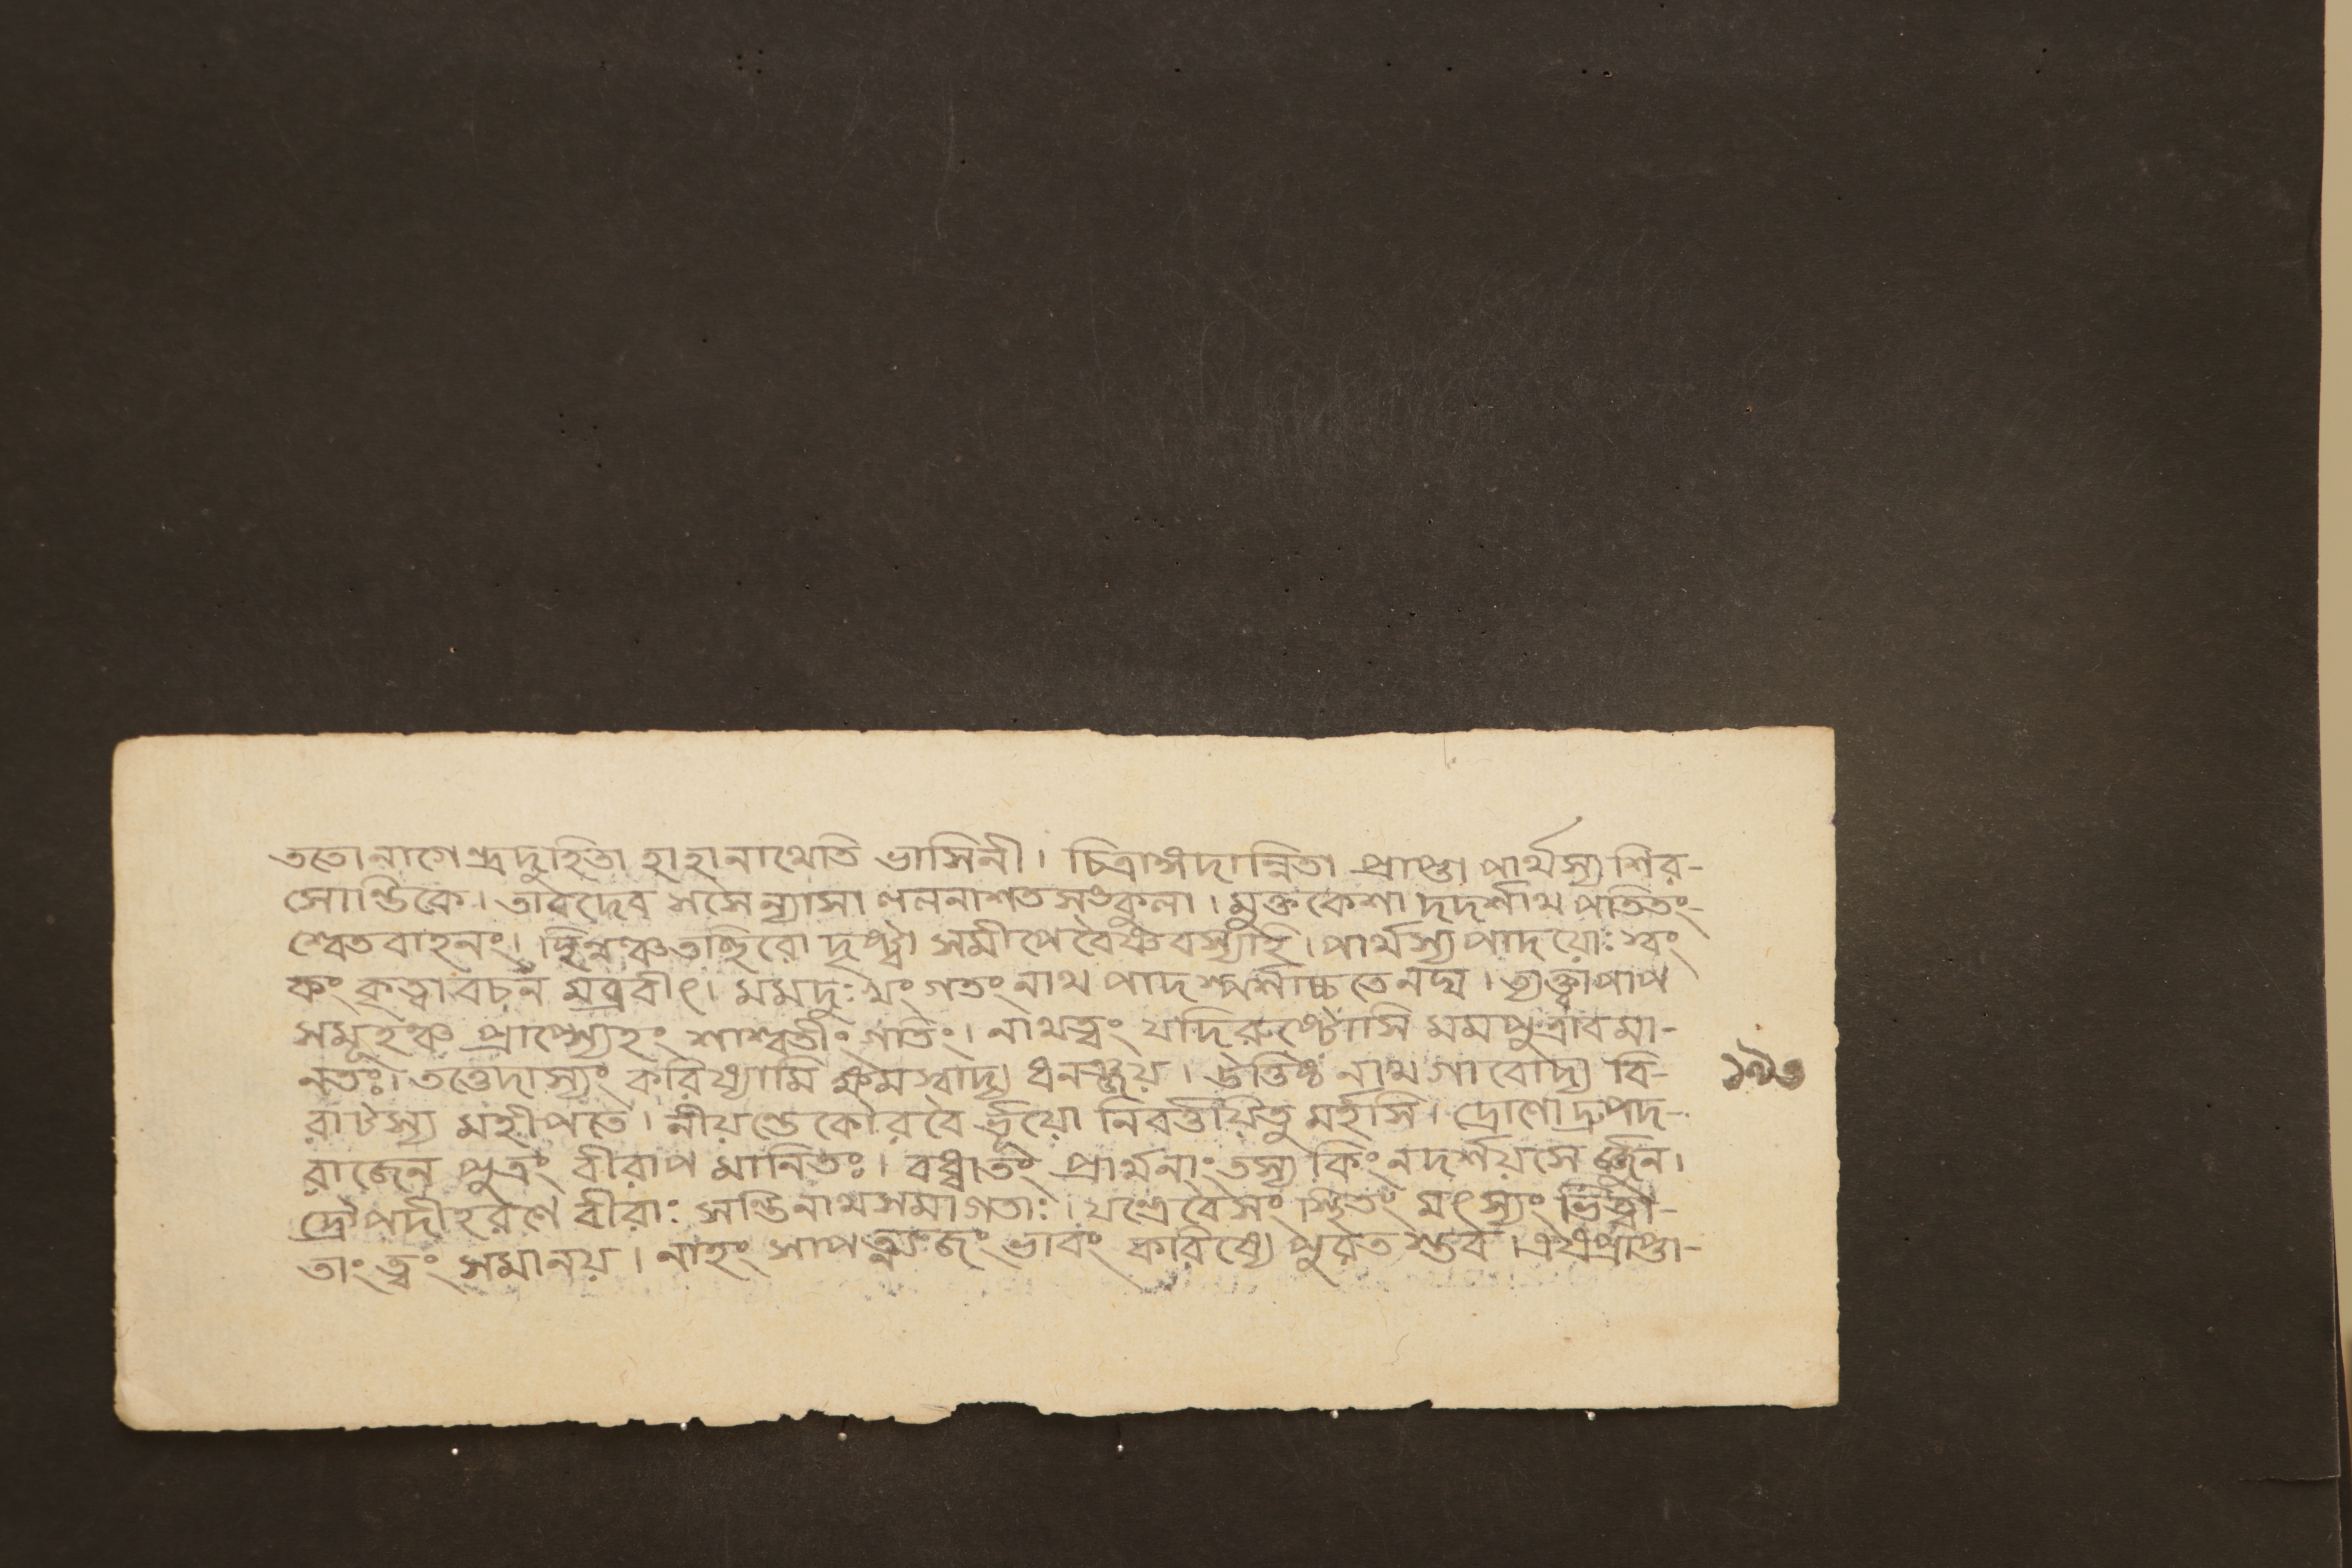 ততো নাগেন্দ্রদুহিতা হাহানাথেতি ভাসিনী। চিত্রাঙ্গদান্বিতা প্রাপ্তা পার্থস্য শির-
সোন্তিকে। তাবদেব সসৈন্যাসা ললনাশতসংকুলা। মুক্তকেশা দদর্শাথ পতিতং-
শ্বেতবাহনং। ছিন্নঞ্চ তচ্ছিরো দৃষ্ট্বা সমীপে বৈষ্ণবস্যহি। পার্থস্য পাদয়োঃ স্বং
কং কৃত্বা বচন মব্রবীৎ। মমদুঃখং গতং নাথ পাদস্পর্শাচ্চ তেনঘ। ত্যক্ত্বা পাপ
সমূহঞ্চ প্রাপ্স্যেহং শাশ্বতীং গতিং। নাথত্বং যদি রুষ্টোসি মমপুত্রাবমা-
নতঃ। তত্তেদাস্যং করিষ্যামি ক্ষমস্বাদ্য ধনঞ্জয়। উত্তিষ্ঠ নাথ গাবোদ্য বি-
রাটস্য মহীপতে। নীয়ন্তে কৌরবৈ র্ভূয়ো নিবর্ত্তয়িতু মর্হসি। দ্রোণো দ্রুপদ-
রাজেন পুত্রং বীরাপমানিতঃ। বধ্বাতং প্রার্থনাং তস্য কিং নদর্শয়সে র্জ্জুন।
দ্রৌপদীহরণে বীরাঃ সন্তিনাথসমাগতাঃ। যন্ত্রেবৈসংস্থিতং মৎস্যং ভিত্বা-
তাং ত্বং সমানয়। নাহং সাপত্ন্যজং ভাবং করিষ্যে পুরত স্তব। এষপ্রাপ্তা-
১৯৩